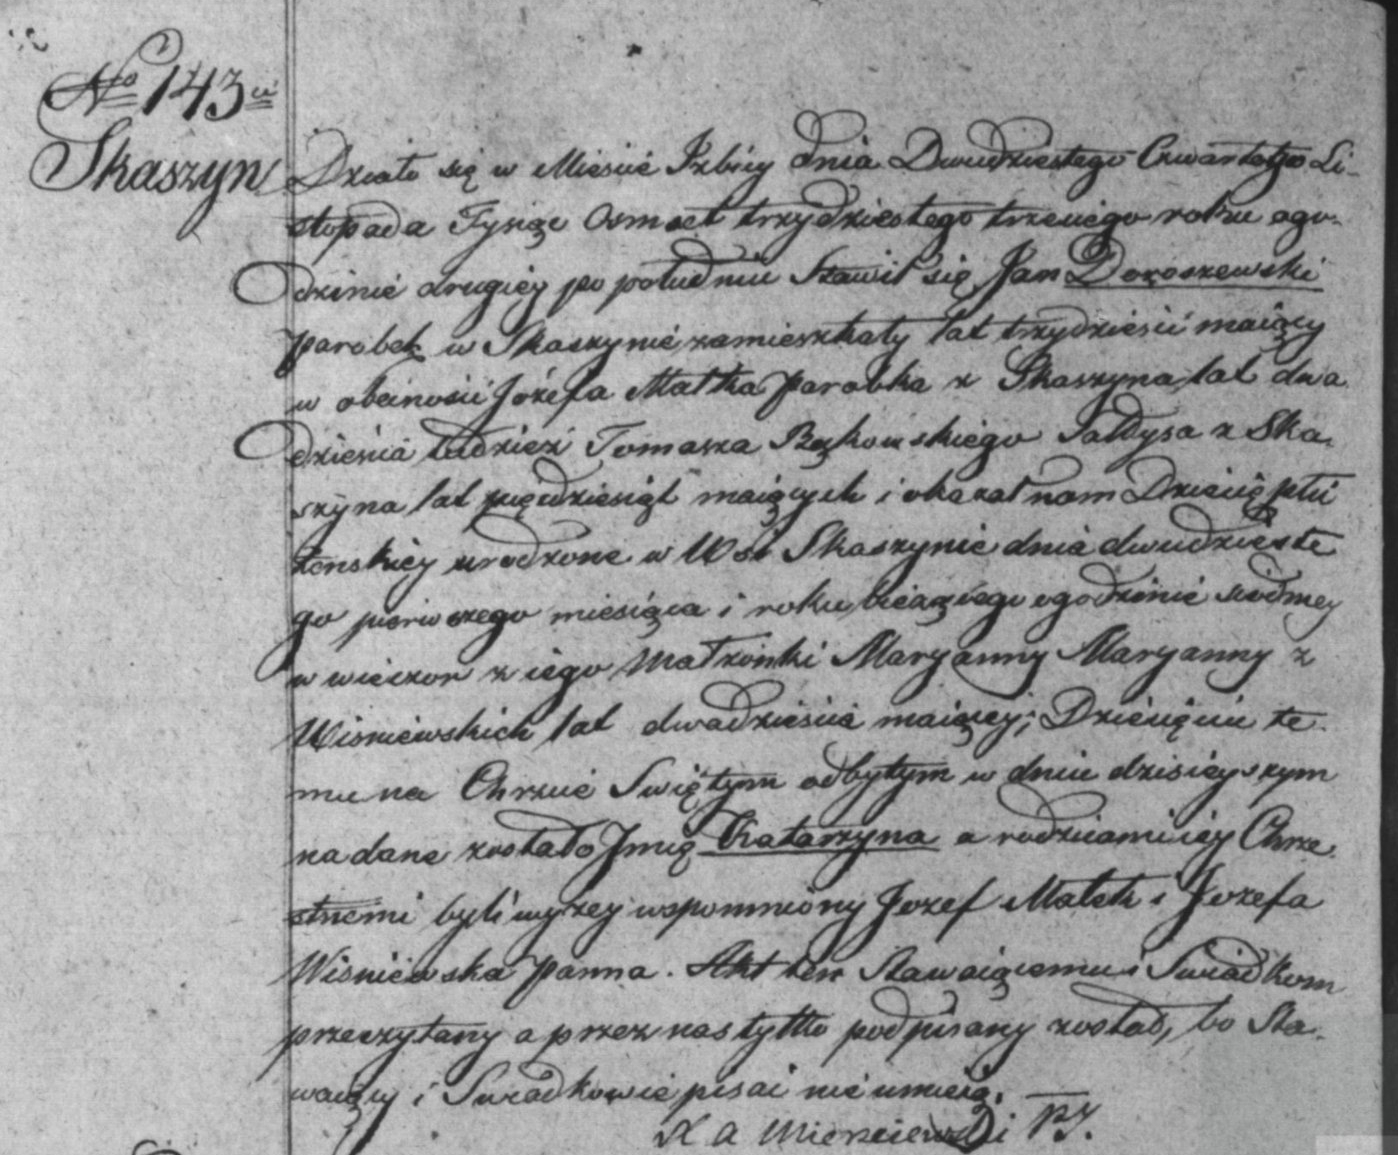 No 143
Skaszyn
Działo się w Mieście Izbicy dnia Dwudziestego Czwartego Li-
stopada Tysiąc Osmset trzydziestego trzeciego roku ogo-
dzinie drugiey po południu Stawił się Jan Doroszewski
parobek w Skaszynie zamieszkały lat trzydzieści maiący
w obecności Józefa Matka parobka z Skaszyna lat dwa
dzieścia tudzież Tomasza Bąkowskiego z Ska-
szyna lat maiących i okazał nam Dziecię płci
żenskiey urodzone w Wsi Skaszynie dnia dwudzieste
go pierwszego miesiąca i roku bieżącego ogodzinie siodmey
w wieczor z iego Małżonki Maryanny Maryanny z
Wisniewskich lat dwadzieścia maiącey; Dziecięciu te
mu na Chrzcie Świętym odbytym w dniu dzisieyszym
nadane zostało Imię Katarzyna a rodzicami iey Chrze
stnemi byli wyzey wspomniony Jozef Matek i Jozefa
Wisniewska panna. Akt ten Stawaiącemu i Swiadkom
przeczytany a przez nas tylko podpisany został, bo Sta-
waiący i Swiadkowie pisać nie umieią.
X A Mierzeiewski